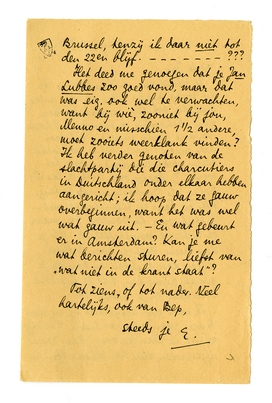 Brussel, tenzij ik daar niet tot
den 22en blijf. - - - - - - - - ???
Het deed me genoegen dat je Jan
Lubbes zoo goed vond, maar dat
was eig. ook wel te verwachten,
want bij wie, zooniet bij jou,
Menno en misschien 1 1/2 andere,
moet zooiets weerklank vinden?
Ik heb verder genoten van de
slachtpartij die die charcutiers
in Duitschland onder elkaar hebben
aangericht; ik hoop dat ze gauw
overbeginnen, want het was wel
wat gauw uit. – En wat gebeurt
er in Amsterdam? Kan je me
wat berichten sturen, liefst van
„wat niet in de krant staat"?
Tot ziens, of tot nader. Veel
hartelijks, ook van Bep,
steeds je E.